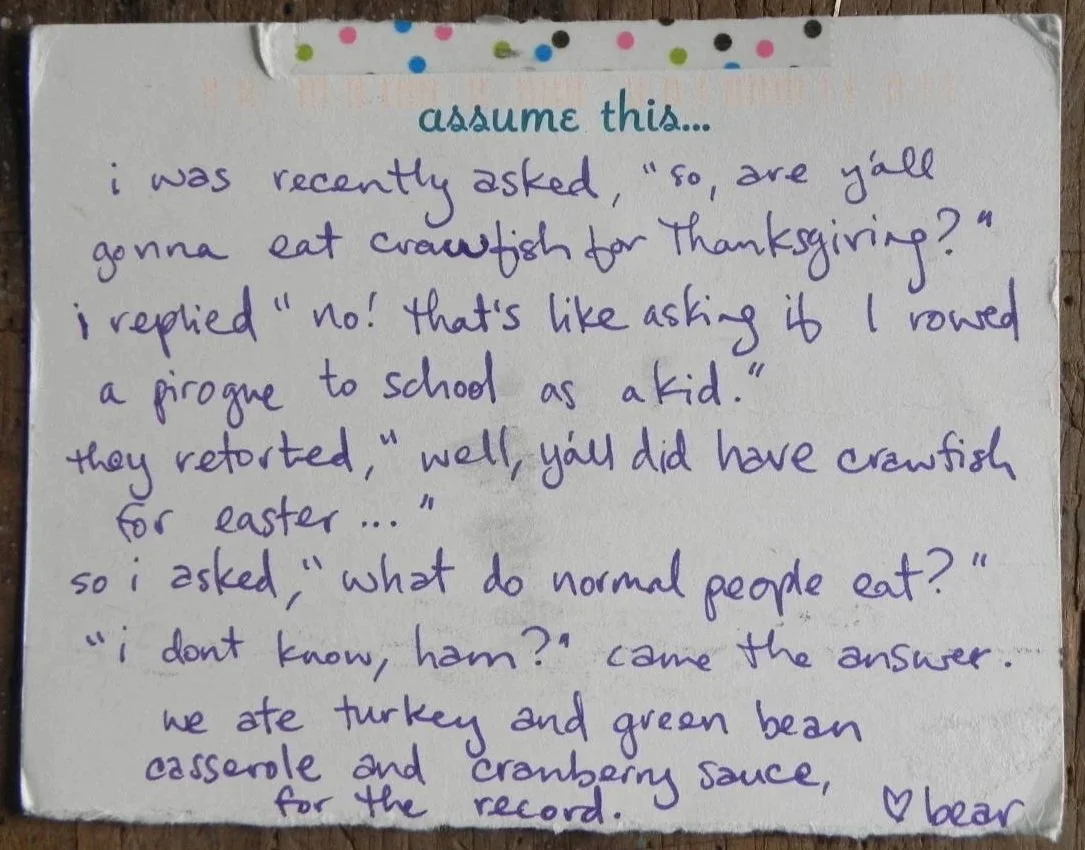 assume this...
i was recently asked, "so, are y'all
gonna eat crawfish for Thanksgiving?"
i replied "no! that's like asking if I rowed
a pirogue to school as a kid."
they retorted, "well, y'all did have crawfish
for easter ..."
so i asked, "what do normal people eat?"
"i dont know, ham?" came the answer.
we ate turkey and green bean
casserole and cranberry sauce,
for the record. ♡ bear